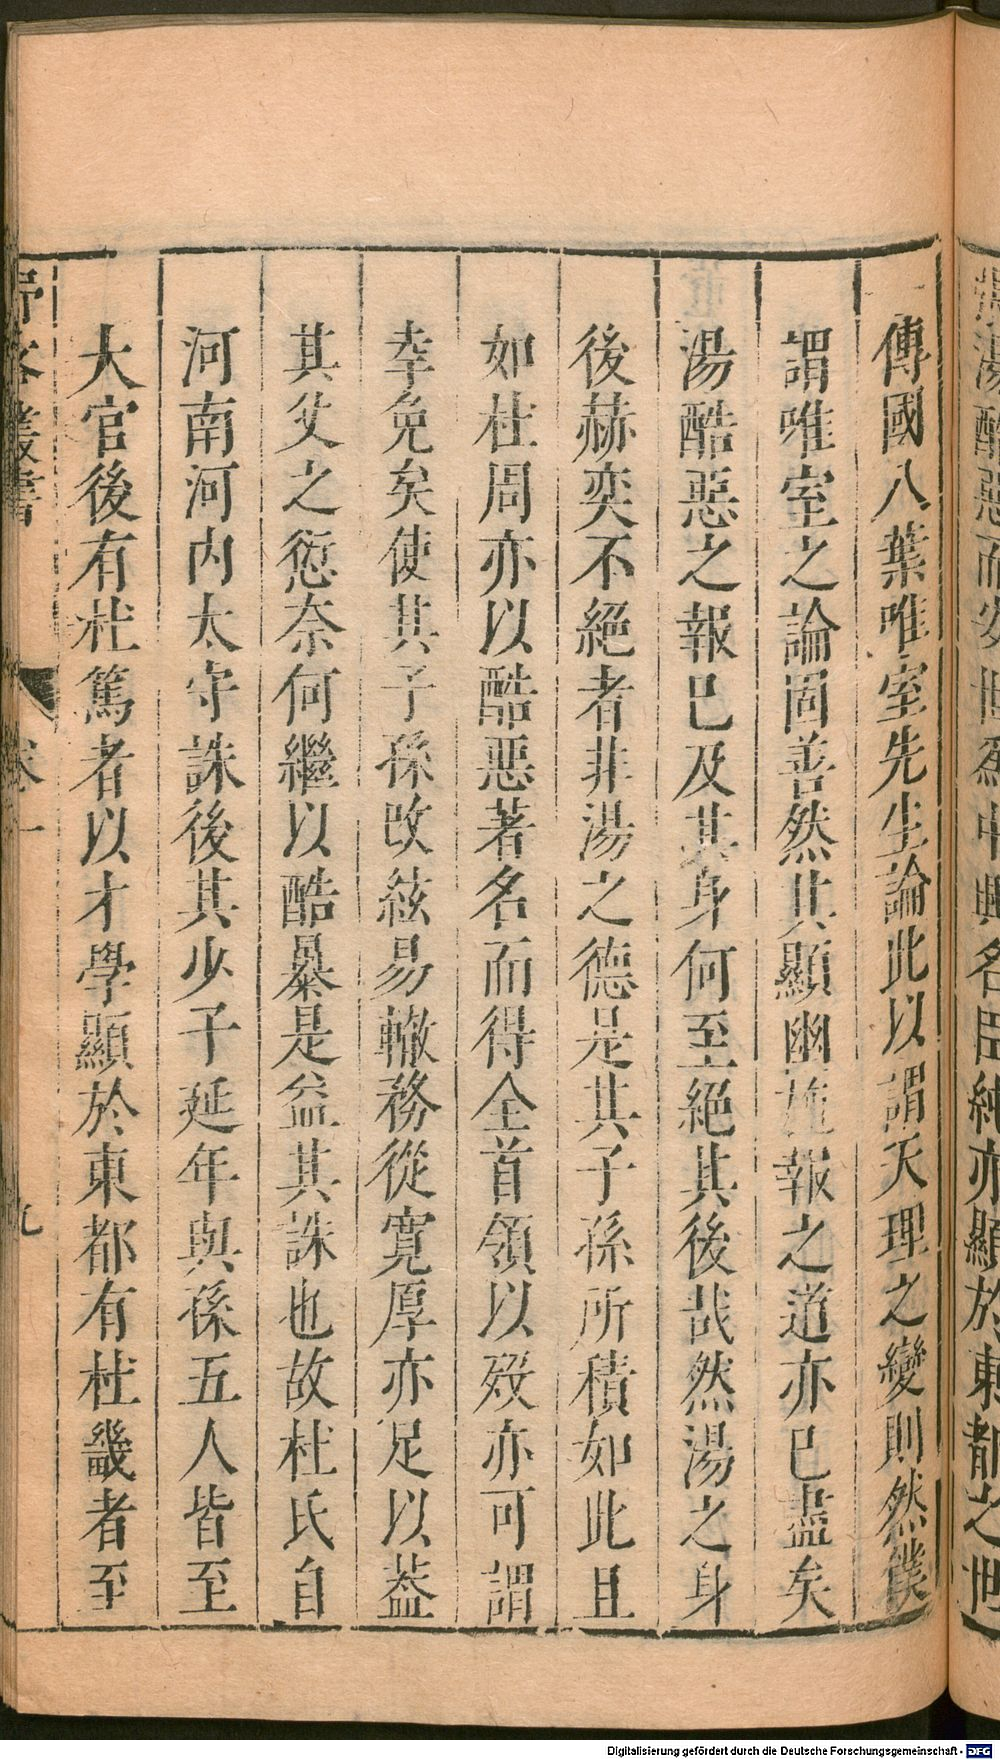 湯酷惡而安世爲中興名臣純亦顯於東都之世
傳國八葉唯室先生論此以謂天理之變則然僕
謂唯室之論固善然其顯幽施報之道亦已盡矣
湯酷惡之報已及其身何至絕其後哉然湯之身
後赫奕不絕者非湯之德是其子孫所積如此且
如杜周亦以酷惡著名而得全首領以歿亦可謂
幸免矣使其子孫改絃易轍務從寬厚亦足以葢
其父之愆奈何繼以酷暴是益其誅也故杜氏自
河南河内太守誅後其少子延年與孫五人皆至
大官後有杜篤者以才學顯於東都有杜畿者至
野客叢書 卷一 九
Digitalisierung gefördert durch die Deutsche Forschungsgemeinschaft - DFG